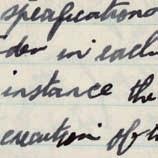 specifications
der in each
instance the
execution of t